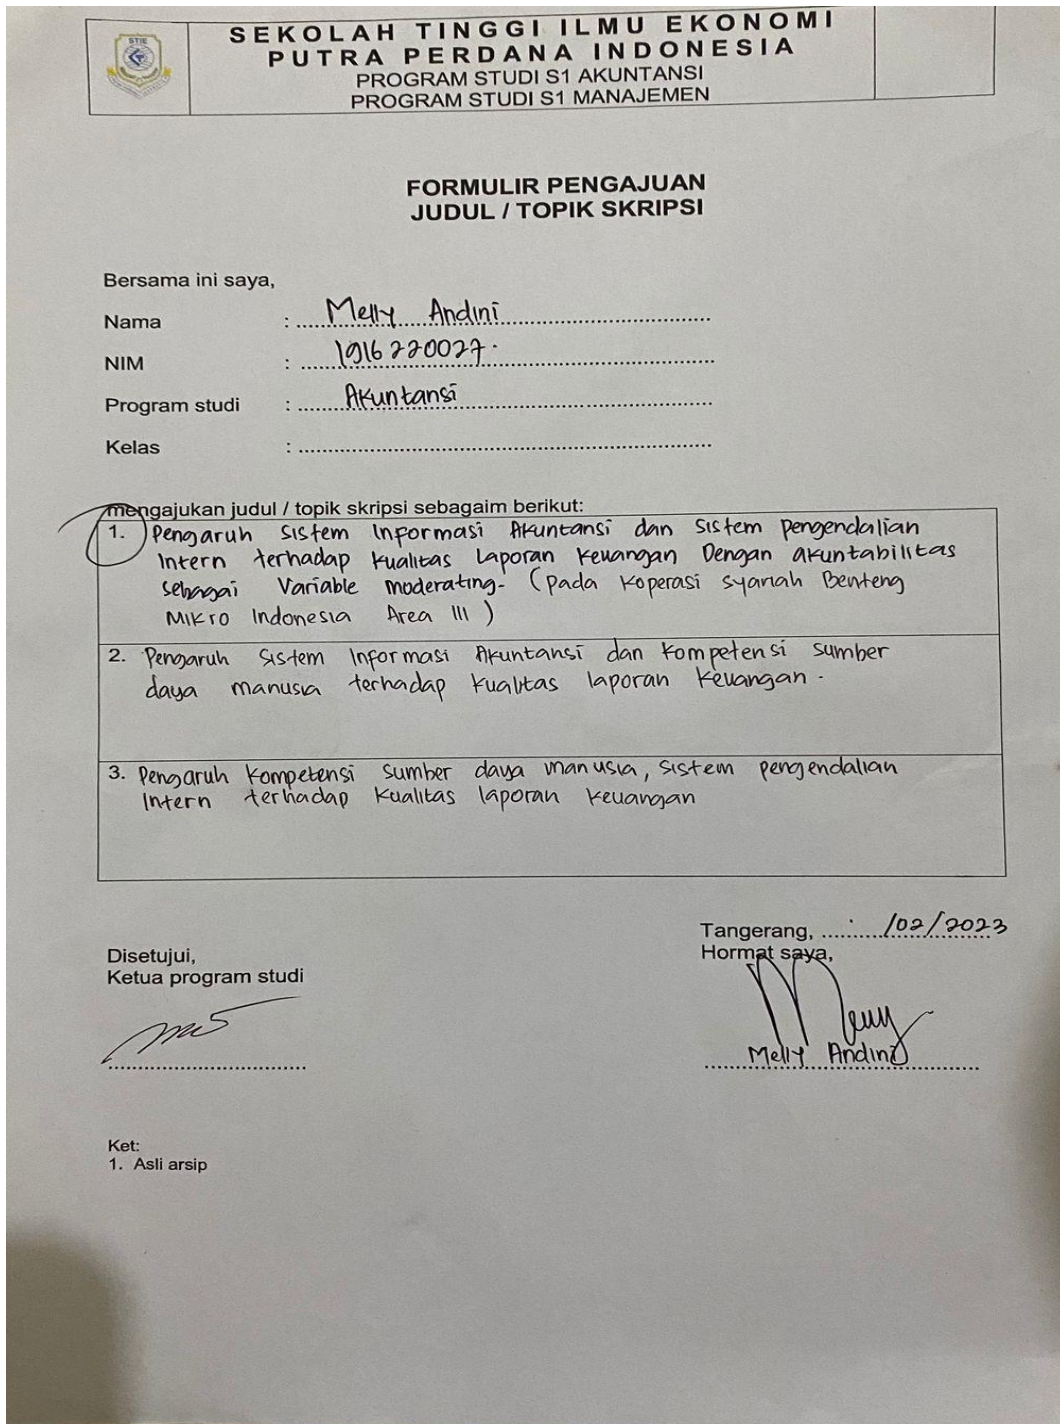 STIE
SEKOLAH TINGGI ILMU EKONOMI
PUTRA PERDANA INDONESIA
PROGRAM STUDI S1 AKUNTANSI
PROGRAM STUDI S1 MANAJEMEN
FORMULIR PENGAJUAN
JUDUL / TOPIK SKRIPSI
Bersama ini saya,
Nama : Melly Andini
NIM : 1916220027.
Program studi : Akuntansi
Kelas :
mengajukan judul / topik skripsi sebagaim berikut:
1. Pengaruh Sistem Informasi Akuntansi dan Sistem pengendalian
Intern terhadap kualitas Laporan Keuangan Dengan akuntabilitas
sebagai Variable moderating- (pada Koperasi syariah Benteng
Mikro Indonesia Area III )
2. Pengaruh Sistem Informasi Akuntansi dan Kompetensi sumber
daya manusia terhadap kualitas laporan Keuangan.
3. Pengaruh Kompetensi sumber daya manusia, Sistem pengendalian
Intern terhadap Kualitas laporan keuangan
Tangerang, /02/2023
Disetujui, Hormat saya,
Ketua program studi
Melly Andini
Ket:
1. Asli arsip